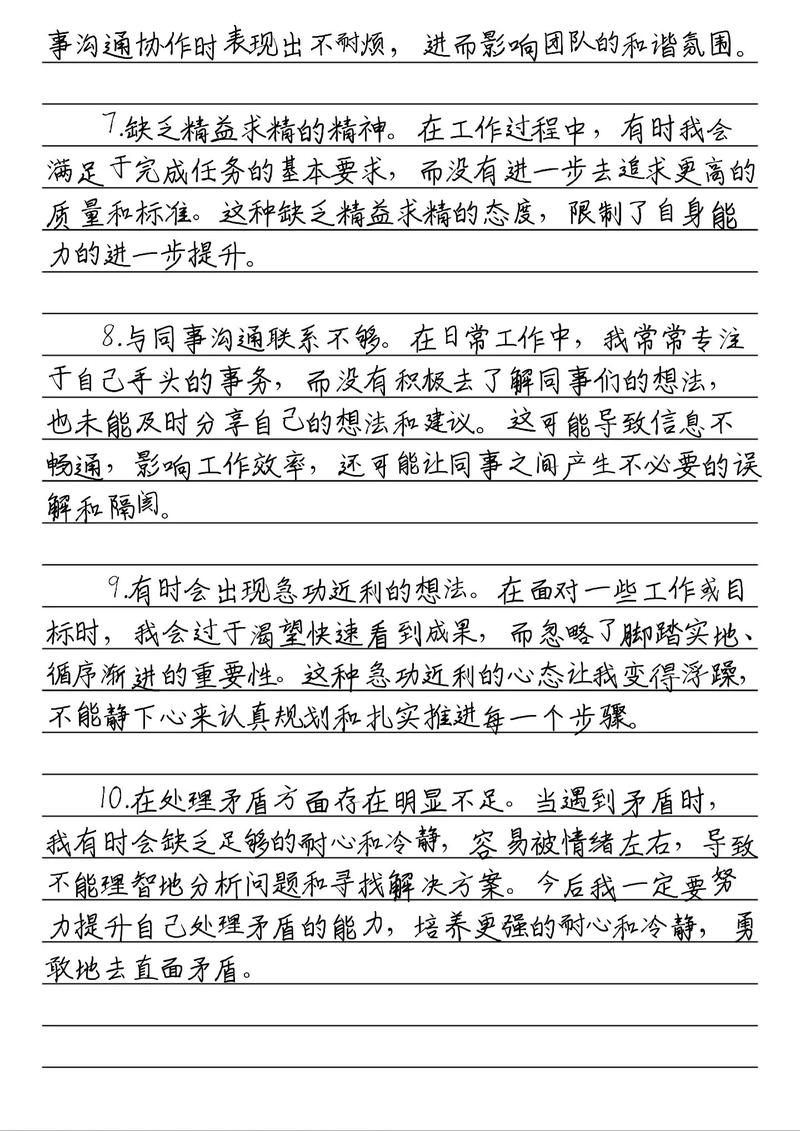 事沟通协作时表现出不耐烦，进而影响团队的和谐氛围。
7.缺乏精益求精的精神。在工作过程中，有时我会
满足于完成任务的基本要求，而没有进一步去追求更高的
质量和标准。这种缺乏精益求精的态度，限制了自身能
力的进一步提升。
8.与同事沟通联系不够。在日常工作中，我常常专注
于自己手头的事务，而没有积极去了解同事们的想法，
也未能及时分享自己的想法和建议。这可能导致信息不
畅通，影响工作效率，还可能让同事之间产生不必要的误
解和隔阂。
9.有时会出现急功近利的想法。在面对一些工作或目
标时，我会过于渴望快速看到成果，而忽略了脚踏实地、
循序渐进的重要性。这种急功近利的心态让我变得浮躁，
不能静下心来认真规划和扎实推进每一个步骤。
10.在处理矛盾方面存在明显不足。当遇到矛盾时，
我有时会缺乏足够的耐心和冷静，容易被情绪左右，导致
不能理智地分析问题和寻找解决方案。今后我一定要努
力提升自己处理矛盾的能力，培养更强的耐心和冷静，勇
敢地去直面矛盾。